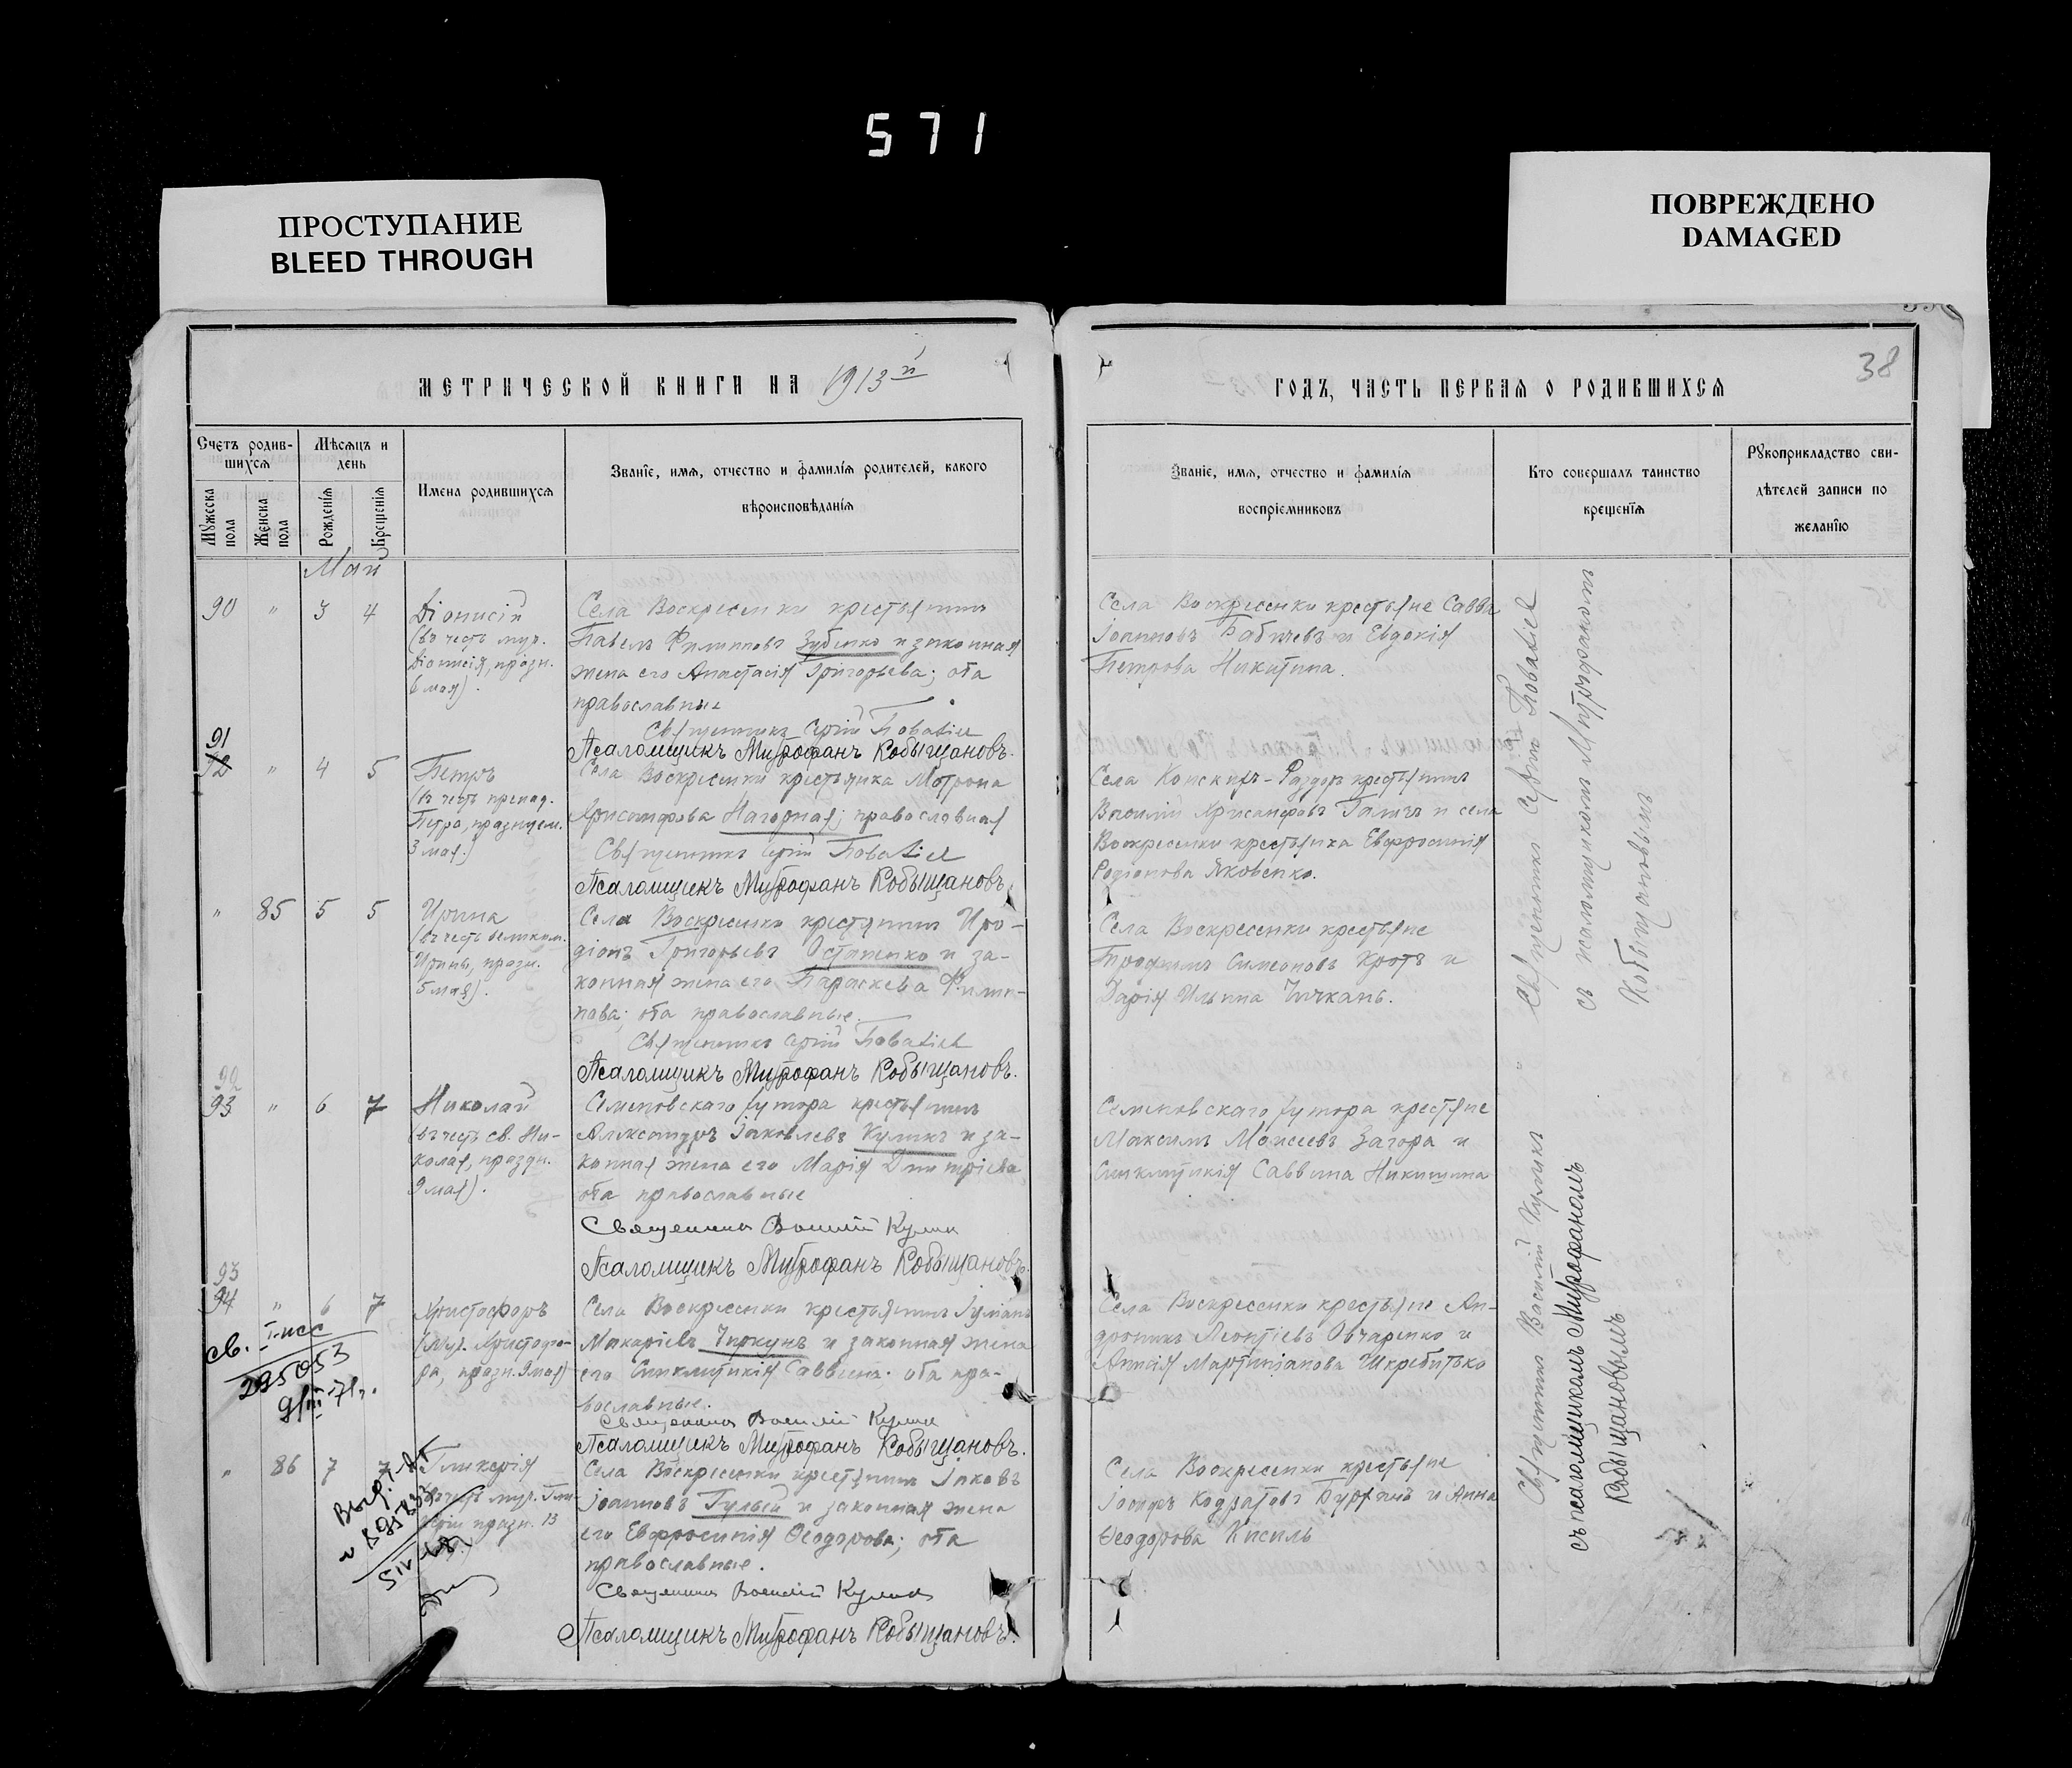 571
ПРОСТУПАНИЕ
BLEED THROUGH
ПОВРЕЖДЕНО
DAMAGED
МЕТРИЧЕСКОЙ КНИГИ НА 1913й
Счетъ родив-
шихся
Мѣсяцъ и
день
Мужеска
пола
Женска
пола
Рожденія
Крещенія
Имена родившихся
Званіе, имя, отчество и фамилія родителей, какого
вѣроисповѣданія
Май
90 " 3 4
Діонисій
(въ честь муч.
Діонисія, празн.
6 мая).
Села Воскресенки крестьянинъ
Павелъ Филипповъ Зубенко и законная
жена его Анастасія Григорьева; оба
православные
Священникъ Сергій
Псаломщикъ Митрофанъ Кобыщановъ.
91
92 " 4 5
Петръ
(въ честь препод.
Петра, празднуем.
3 мая.)
Села Воскресенки крестьянка Матрона
Хрисанфова Нагорная; православная
Священникъ Сергій
Псаломщикъ Митрофанъ Кобыщановъ.
" 85 5 5
Ирина
(въ честь великом.
Ирины, празн.
5 мая).
Села Воскресенки крестьянинъ Иро-
діонъ Григорьевъ Остапенко и за-
конная жена его Параскева Филип-
пова; оба православные.
Священникъ Сергій
Псаломщикъ Митрофанъ Кобыщановъ.
92
93 " 6 7
Николай
(въ честь св. Ни-
колая, праздн.
9 мая).
Семеновскаго хутора крестьянинъ
Александръ Іаковлевъ Куликъ и за-
конная жена его Марія Димитріева
оба православные
Священникъ Василій Куликъ
Псаломщикъ Митрофанъ Кобыщановъ.
93
94 " 6 7
Христофоръ
(муч. Христофо-
ра, празн. 9 мая)
св.
295053
Села Воскресенки крестьянинъ
Макаріевъ Чиркунъ и законная жена
его Синклитикія Саввина; оба пра-
вославные.
Священникъ Василій Куликъ
Псаломщикъ Митрофанъ Кобыщановъ.
" 86 7 7
Гликерія
Села Воскресенки крестьянинъ Іаковъ
Іоанновъ Гулый и законная жена
его Евфросинія Ѳеодорова; оба
православные.
Священникъ Василій Куликъ
Псаломщикъ Митрофанъ Кобыщановъ.
38
ГОДЪ, ЧАСТЬ ПЕРВАЯ О РОДИВШИХСЯ
Званіе, имя, отчество и фамилія
воспріемниковъ
Кто совершалъ таинство
крещенія
Рукоприкладство сви-
дѣтелей записи по
желанію
Села Воскресенки крестьяне Савва
Іоанновъ Бабичевъ и Евдокія
Петрова Никитина.
Села Конскихъ-Раздоръ крестьянинъ
Василій Хрисанфовъ и села
Воскресенки крестьянка Евфросинія
Родіонова Яковенко.
Села Воскресенки крестьяне
Трофимъ Симеоновъ Кротъ и
Дарія Ильина Чичкань.
Семеновскаго хутора крестьяне
Максимъ Моисеевъ Загора и
Синклитикія Саввина Никитина
Села Воскресенки крестьяне Ан-
дроникъ Леонтіевъ Овчаренко и
Анисія Мартиніанова Шкребитько
Села Воскресенки крестьяне
Кодратовъ и Анна
Ѳеодорова Кисиль
Священникъ Сергій
съ псаломщикомъ Митрофаномъ
Кобыщановымъ
Священникъ Василій Куликъ
съ псаломщикомъ Митрофаномъ
Кобыщановымъ